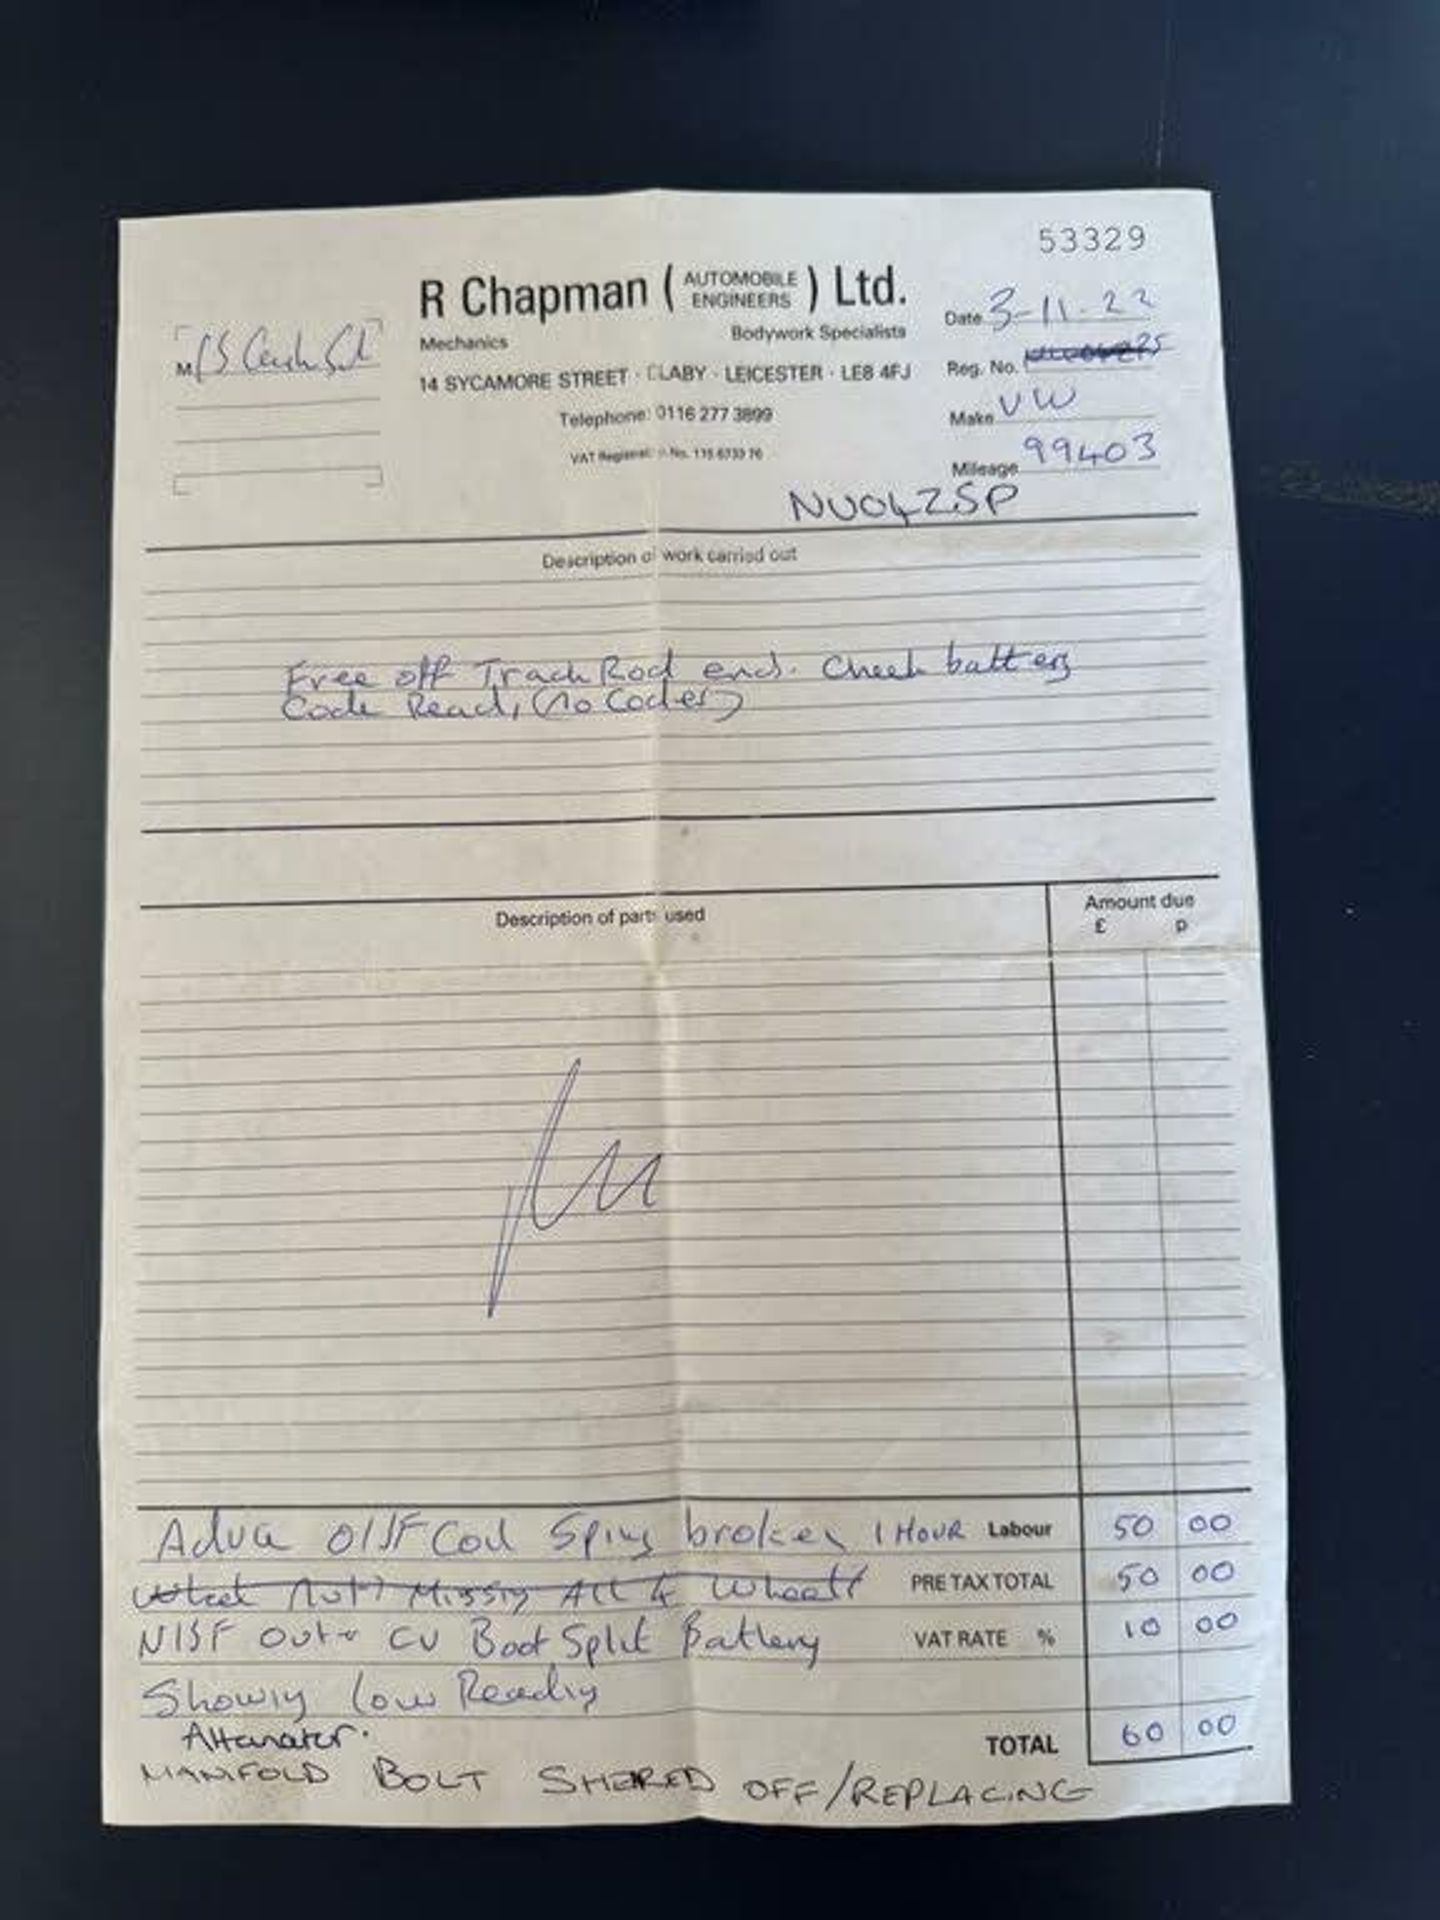 53329
R Chapman ( AUTOMOBILE ENGINEERS ) Ltd.
Mechanics Bodywork Specialists
14 SYCAMORE STREET · BLABY · LEICESTER · LE8 4FJ
Telephone: 0116 277 3899
VAT No. 115 6733 76
M
Date 3-11-22
Reg. No.
Make VW
Mileage 99403
NU04ZSP
Description of work carried out
Free off Track Rod end. Check battery
Code Read, (No Codes)
Description of parts used
Amount due
£ p
O/SF Coil Spring broken 1 HOUR Labour 50 00
Missing All 4 Wheels PRE TAX TOTAL 50 00
N/SF Outer CV Boot Split Battery VAT RATE % 10 00
Showing low Reading
Altanator. TOTAL 60 00
MANIFOLD BOLT SHERED OFF/REPLACING